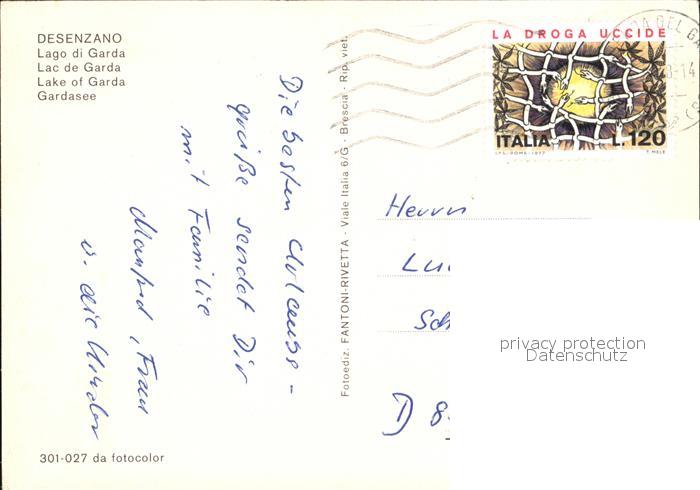 DESENZANO
Lago di Garda
Lac de Garda
Lake of Garda
Gardasee
Die besten Urlaubs-
grüße sendet Dir
mit Familie
Manfred, Frau
u. die Kinder
301-027 da fotocolor
Fotoediz. FANTONI-RIVETTA - Viale Italia 6/G - Brescia - Rip. viet.
LA DROGA UCCIDE
ITALIA L.120
I.P.S.-ROMA-1977 T. MELE
Herrn
D 8
privacy protection
Datenschutz